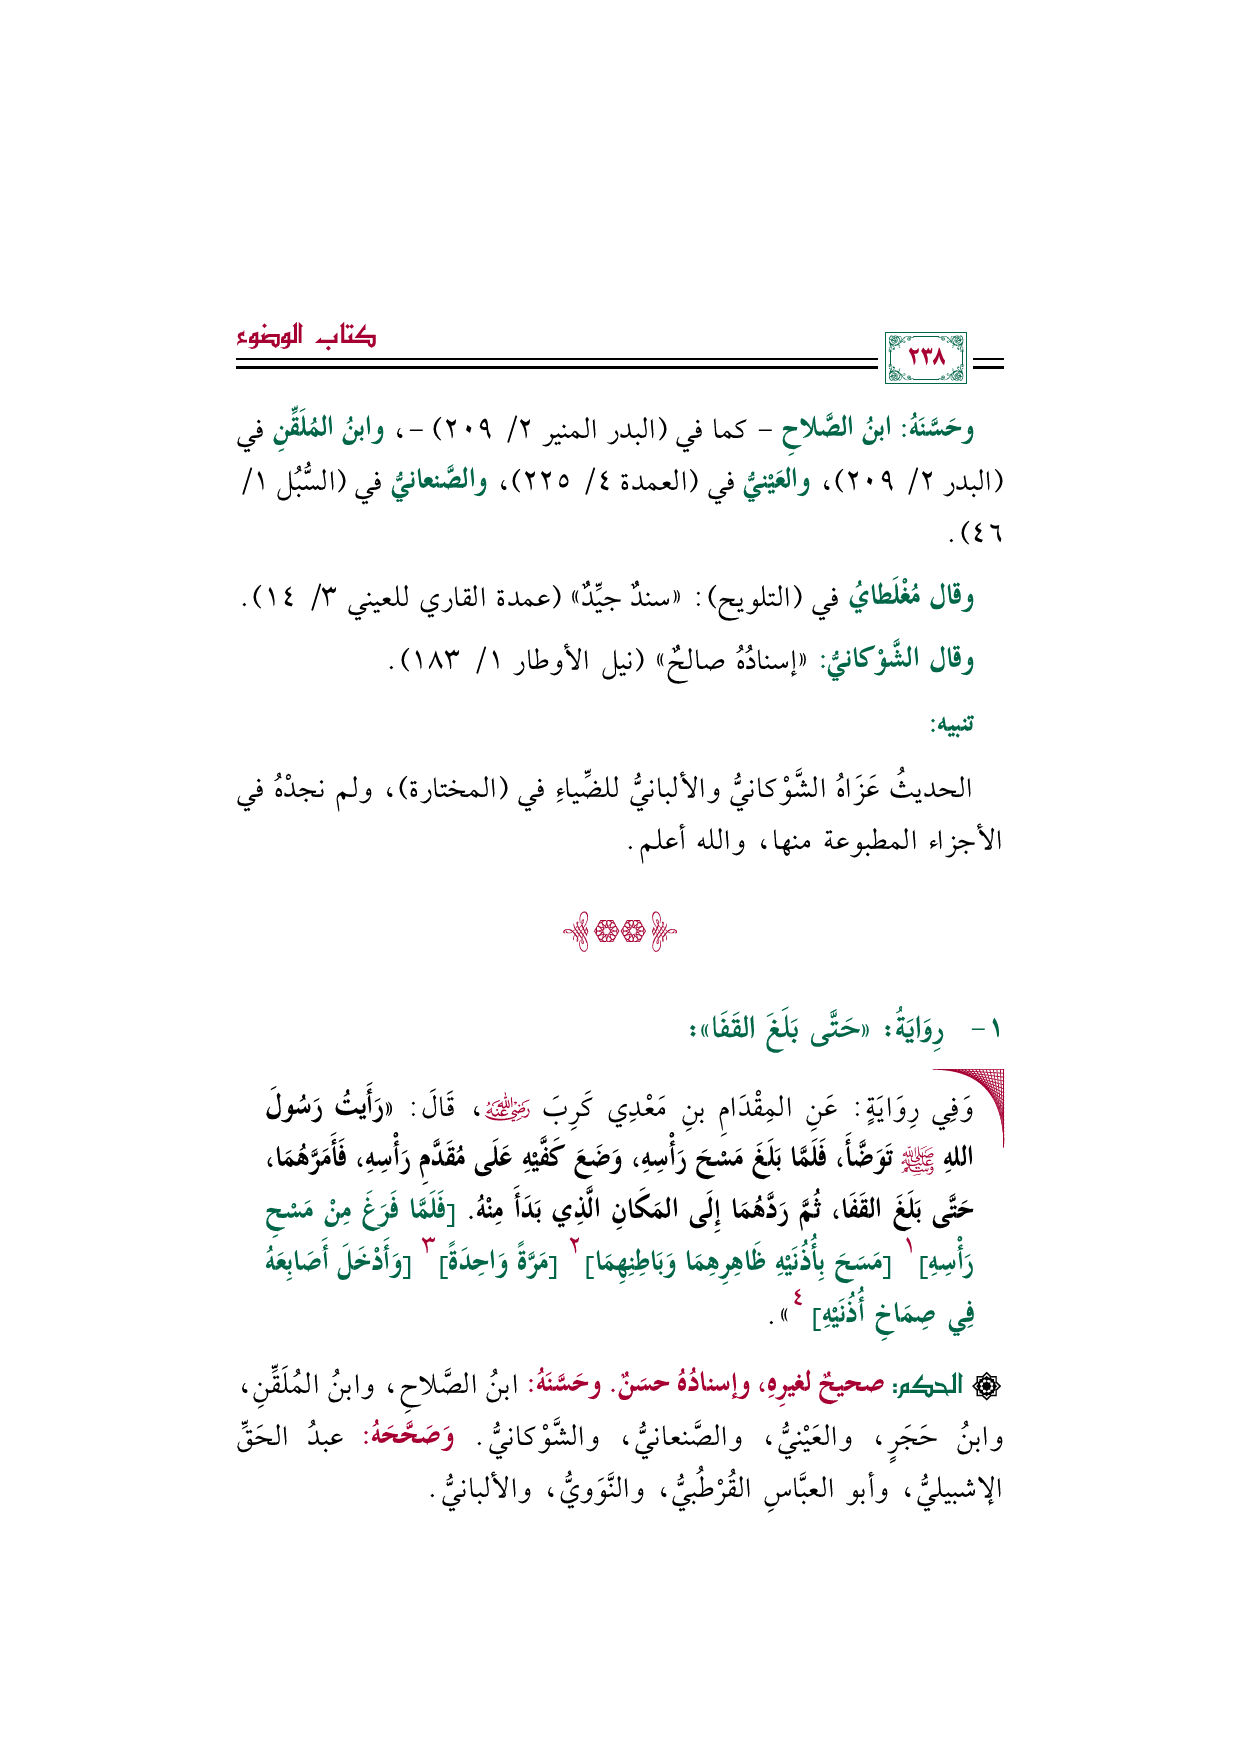 كتاب الوضوء
٢٣٨
وحَسَّنَهُ: ابنُ الصَّلاحِ – كما في (البدر المنير ٢/ ٢٠٩) –، وابنُ المُلَقِّنِ في
(البدر ٢/ ٢٠٩)، والعَيْنيُّ في (العمدة ٤/ ٢٢٥)، والصَّنعانيُّ في (السُّبُل ١/
٤٦).
وقال مُغْلَطايُ في (التلويح): «سندٌ جيِّدٌ» (عمدة القاري للعيني ٣/ ١٤).
وقال الشَّوْكانيُّ: «إسنادُهُ صالحٌ» (نيل الأوطار ١/ ١٨٣).
تنبيه:
الحديثُ عَزَاهُ الشَّوْكانيُّ والألبانيُّ للضِّياءِ في (المختارة)، ولم نجدْهُ في
الأجزاء المطبوعة منها، والله أعلم.
١– رِوَايَةُ: «حَتَّى بَلَغَ القَفَا»:
وَفِي رِوَايَةٍ: عَنِ المِقْدَامِ بنِ مَعْدِي كَرِبَ رضي الله عنه، قَالَ: «رَأَيتُ رَسُولَ
اللهِ ﷺ تَوَضَّأَ، فَلَمَّا بَلَغَ مَسْحَ رَأْسِهِ، وَضَعَ كَفَّيْهِ عَلَى مُقَدَّمِ رَأْسِهِ، فَأَمَرَّهُمَا،
حَتَّى بَلَغَ القَفَا، ثُمَّ رَدَّهُمَا إِلَى المَكَانِ الَّذِي بَدَأَ مِنْهُ. [فَلَمَّا فَرَغَ مِنْ مَسْحِ
رَأْسِهِ]١ [مَسَحَ بِأُذُنَيْهِ ظَاهِرِهِمَا وَبَاطِنِهِمَا]٢ [مَرَّةً وَاحِدَةً]٣ [وَأَدْخَلَ أَصَابِعَهُ
فِي صِمَاخِ أُذُنَيْهِ]٤».
الحكم: صحيحٌ لغيرِهِ، وإسنادُهُ حسَنٌ. وحَسَّنَهُ: ابنُ الصَّلاحِ، وابنُ المُلَقِّنِ،
وابنُ حَجَرٍ، والعَيْنيُّ، والصَّنعانيُّ، والشَّوْكانيُّ. وَصَحَّحَهُ: عبدُ الحَقِّ
الإشبيليُّ، وأبو العبَّاسِ القُرْطُبيُّ، والنَّوَويُّ، والألبانيُّ.